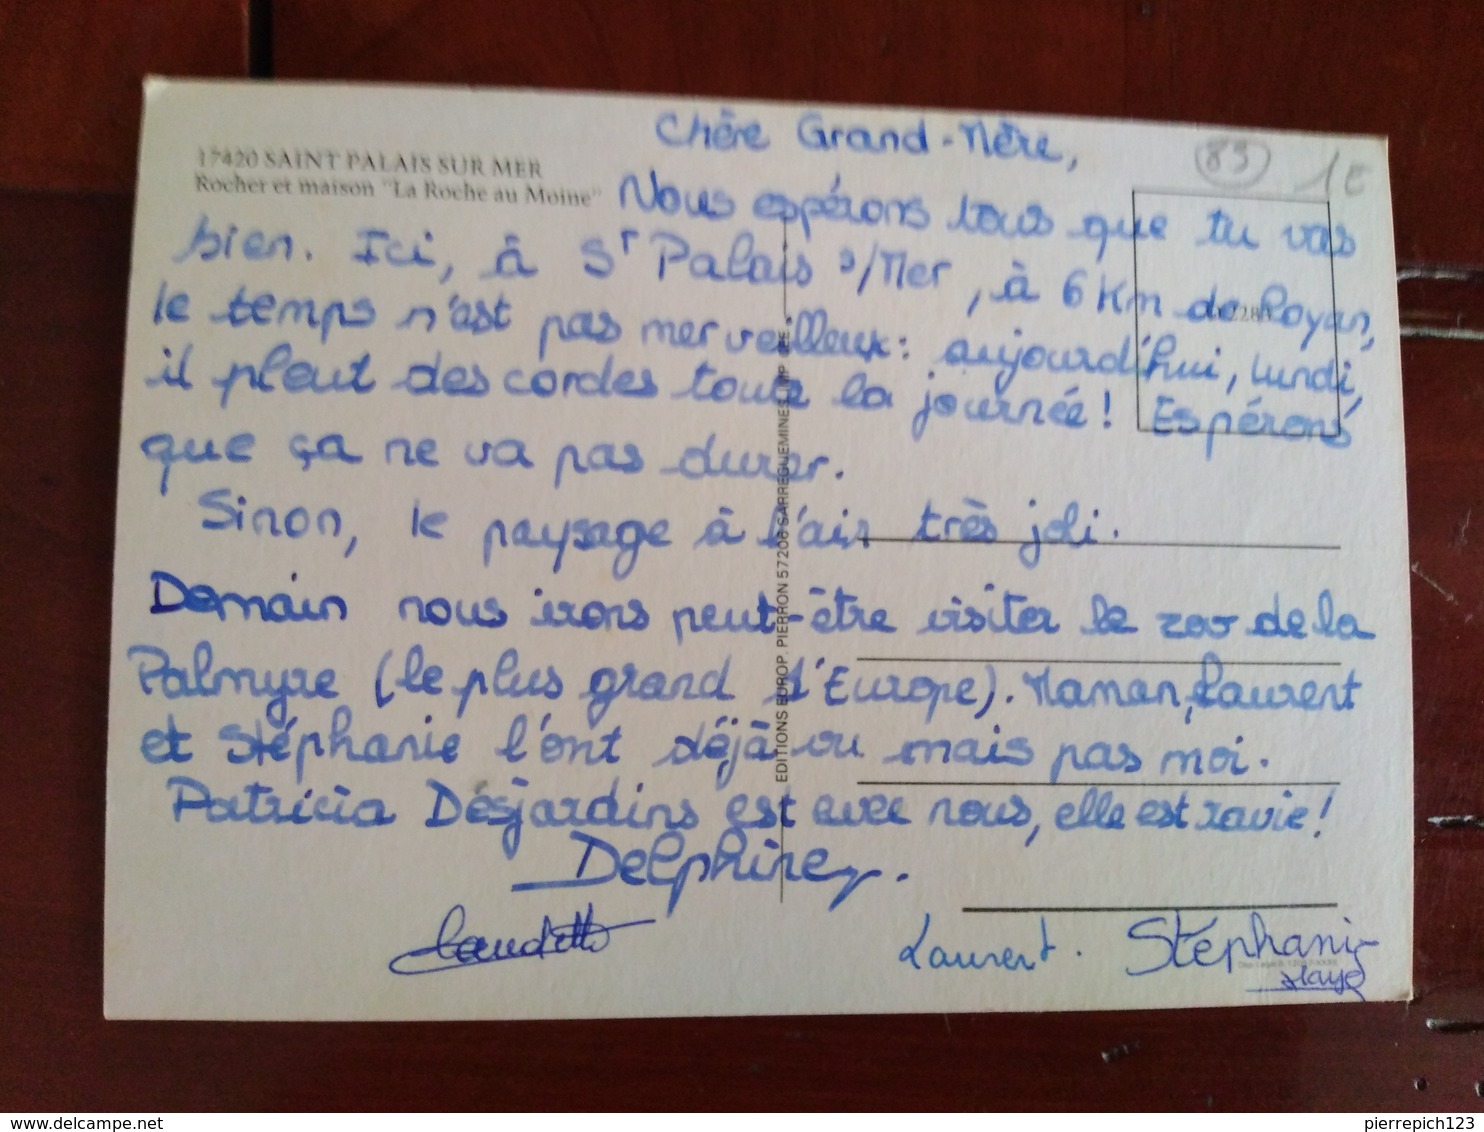 17420 SAINT PALAIS SUR MER
Rocher et maison "La Roche au Moine"
83
1E
Chère Grand-Mère,
Nous espérons tous que tu vas
bien. Ici, à St Palais s/Mer, à 6 Km de Royan,
le temps n'est pas merveilleux : aujourd'hui, lundi,
il pleut des cordes toute la journée ! Espérons
que ça ne va pas durer.
Sinon, le paysage à l'air très joli.
Demain nous irons peut-être visiter le zoo de la
Palmyre (le plus grand d'Europe). Maman, Laurent
et Stéphanie l'ont déjà vu mais pas moi.
Patricia Désjardins est avec nous, elle est ravie !
Delphine.
Claudette
Laurent.
Stéphanie
EDITIONS EUROP. PIERRON 57206 SARREGUEMINES
delcampe.net
pierrepich123